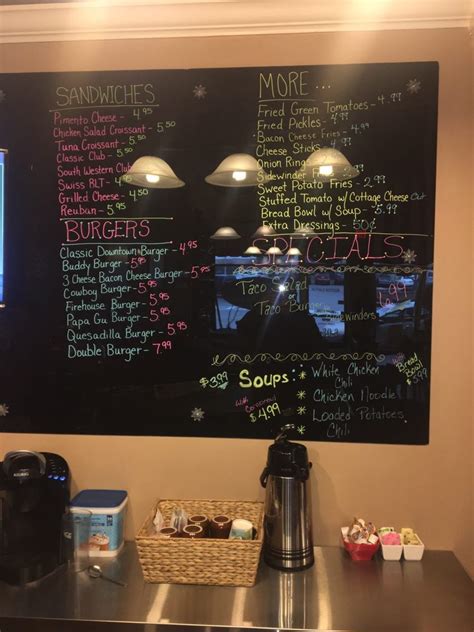 SANDWICHES
Pimento Cheese - 4.95
Chicken Salad Croissant - 5.50
Tuna Croissant - 5.50
Classic Club - 5.
South Western Club
Swiss RLT - 5
Grilled Cheese - 4.95
Reuban - 5.95
BURGERS
Classic Downtown Burger - 4.95
Buddy Burger - 5.95
3 Cheese Bacon Cheese Burger - 5.95
Cowboy Burger - 5.95
Firehouse Burger - 5.95
Papa Gu Burger - 5.95
Quesadilla Burger - 5.95
Double Burger - 7.99
MORE ...
Fried Green Tomatoes - 4.99
Fried Pickles - 4.99
Bacon Cheese Fries - 4.99
Cheese Sticks - 4.99
Onion Rings
Sidewinder Fries
Sweet Potato Fries - 2.50
Stuffed Tomato w/ Cottage Cheese Out
Bread Bowl w/ Soup - 5.99
Extra Dressings - 50¢
SPECIALS
Taco Salad
or
Taco Burger
winders
6.99
$3.99 Soups:
With Cornbread
$4.99
* White Chicken
Chili
* Chicken Noodle
* Loaded Potatoes
Chili
With Bread Bowl
$5.99